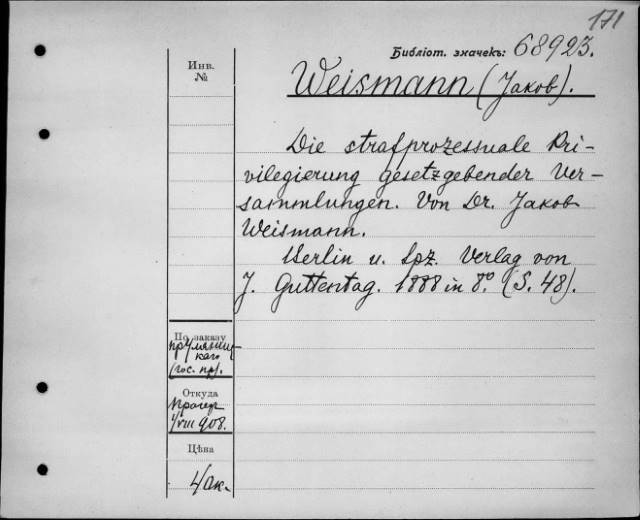 171
Библіот. значекъ: 68923.
Инв.
№
Weismann (Jakob).
Die strafprozessuale Pri-
vilegierung gesetzgebender Ver-
sammlungen. Von Dr. Jakob
Weismann.
Berlin u. Lpz. Verlag von
J. Guttentag. 1888 in 8º. (S. 48).
По заказу
(гос. пр).
Откуда
Прагер
1/VIII 908.
Цѣна